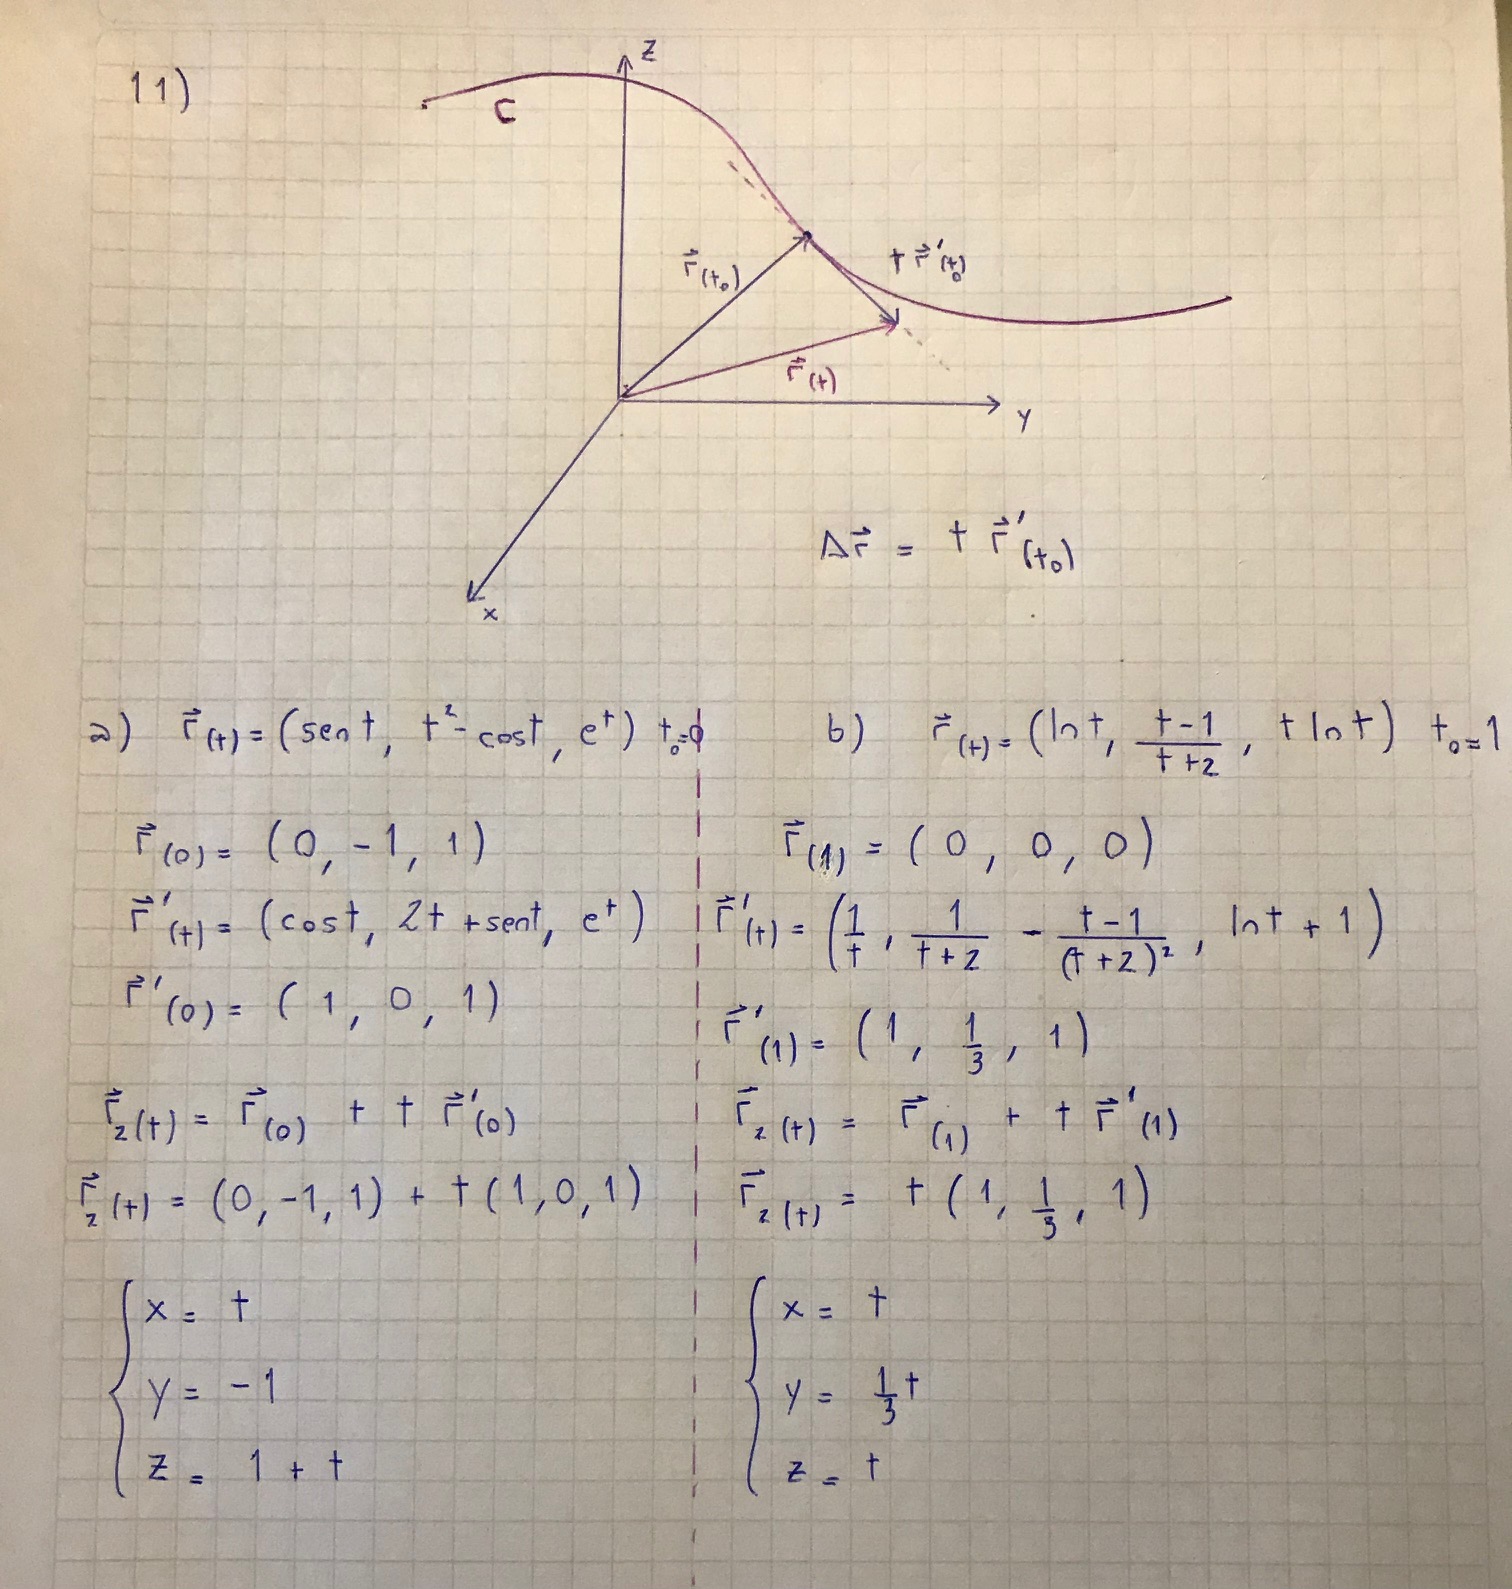 11)
z
C
r⃗(t₀)
t r⃗'(t₀)
r⃗(t)
y
x
Δr⃗ = t r⃗'(t₀)
a) r⃗(t) = (sen t, t² - cos t, eᵗ) t₀=0
r⃗(0) = (0, -1, 1)
r⃗'(t) = (cos t, 2t + sen t, eᵗ)
r⃗'(0) = (1, 0, 1)
r⃗₂(t) = r⃗(0) + t r⃗'(0)
r⃗₂(t) = (0, -1, 1) + t (1, 0, 1)
x = t
y = -1
z = 1 + t
b) r⃗(t) = (ln t, (t-1)/(t+2), t ln t) t₀=1
r⃗(1) = (0, 0, 0)
r⃗'(t) = (1/t, 1/(t+2) - (t-1)/(t+2)², ln t + 1)
r⃗'(1) = (1, 1/3, 1)
r⃗₂(t) = r⃗(1) + t r⃗'(1)
r⃗₂(t) = t (1, 1/3, 1)
x = t
y = 1/3 t
z = t